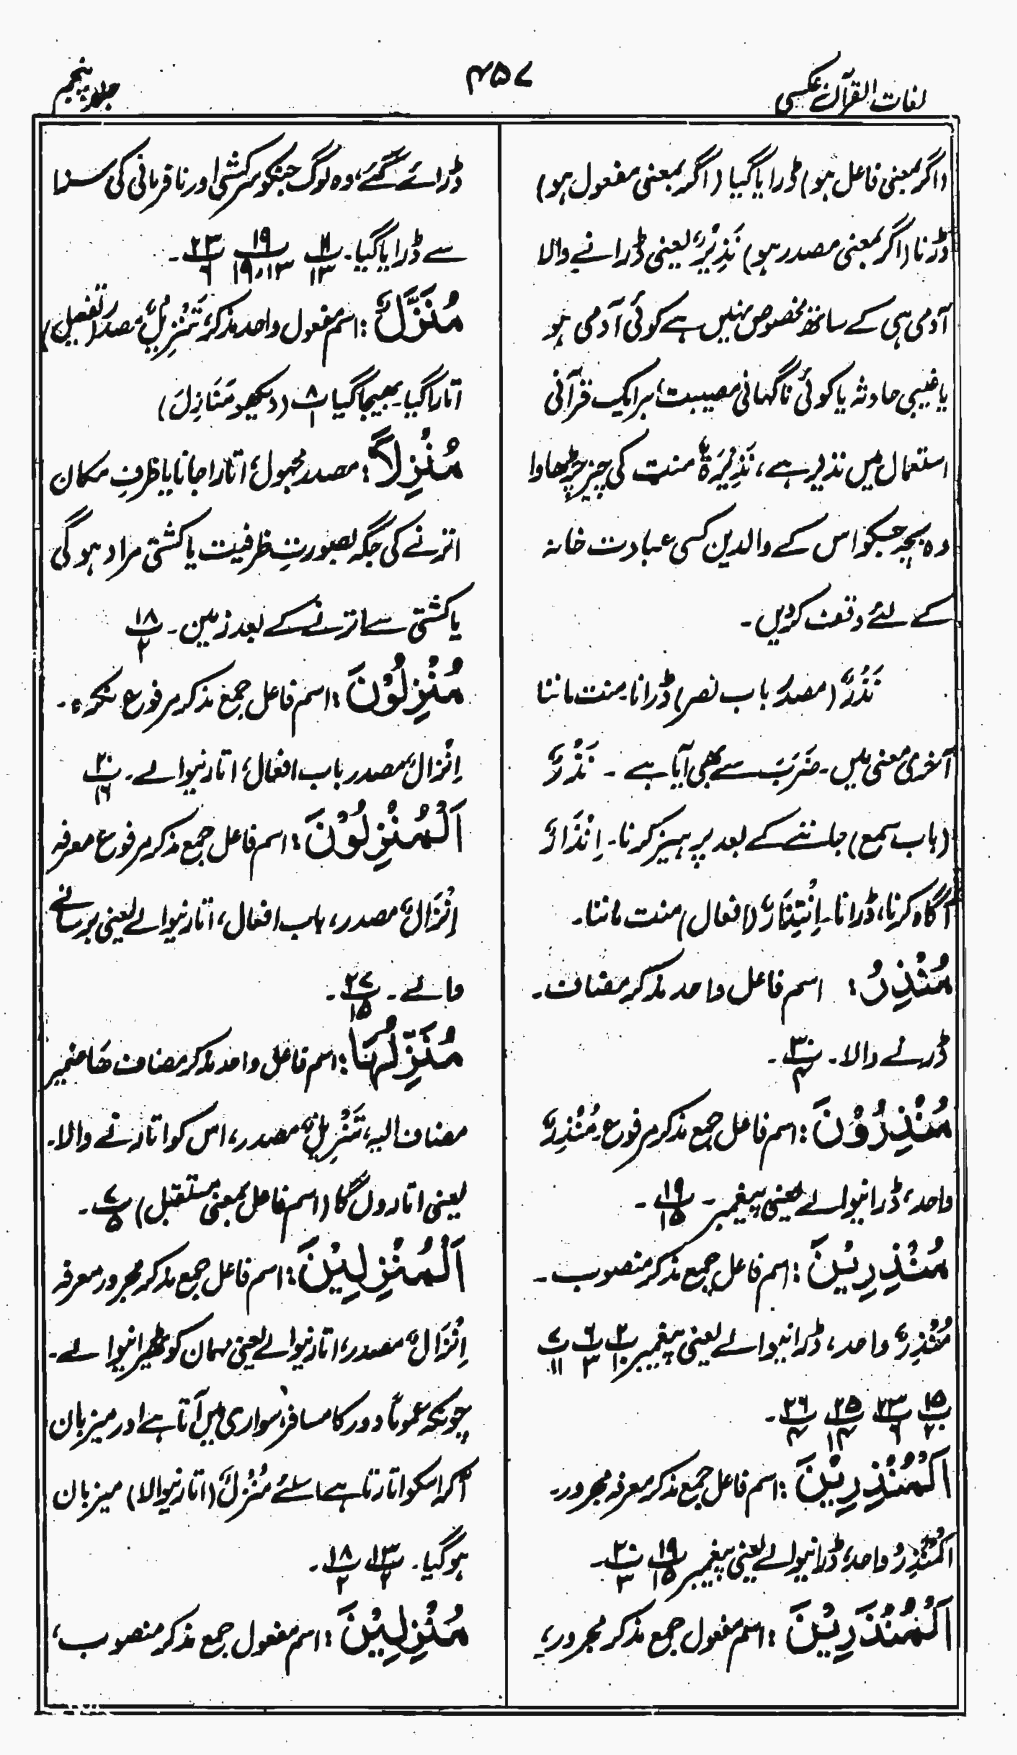 لغات القرآن عکسی
۴۵۷
جلد پنجم
(اگر بمعنی فاعل ہو) ڈرایا گیا (اگر بمعنی مفعول ہو)
ڈرنا (اگر بمعنی مصدر ہو) نَذِیْرٌ یعنی ڈرانے والا
آدمی ہی کے ساتھ مخصوص نہیں ہے کوئی آدمی ہو
یا غیبی حادثہ یا کوئی ناگہانی مصیبت، ہر ایک قرآنی
استعمال میں نذیر ہے، نَذِیْرَۃٌ منت کی چیز چڑھاوا
وہ بچہ جسکو اس کے والدین کسی عبادت خانہ
کے لئے وقف کردیں۔
نَذْرٌ (مصدر باب نصر) ڈرانا۔ منت ماننا
آخری معنی میں۔ ضَرَبَ سے بھی آیا ہے ۔ نَذْرٌ
(باب سمع) جاننے کے بعد پرہیز کرنا۔ اِنْذَارٌ
آگاہ کرنا، ڈرانا۔ اِنْتِذَارٌ (افعال) منت ماننا۔
مُنْذِرُ: اسم فاعل واحد مذکر مضاف۔
ڈرانے والا۔ پ۳۰/۴ ۔
مُنْذِرُوْنَ: اسم فاعل جمع مذکر مرفوع۔ مُنْذِرٌ
واحد، ڈرانیوالے یعنی پیغمبر ۔ پ۱۹/۱۵ ۔
مُنْذِرِیْنَ: اسم فاعل جمع مذکر منصوب ۔
مُنْذِرٌ واحد، ڈرانیوالے یعنی پیغمبر پ۲/۱۰ پ۶/۳ پ۷/۱۱
پ۱۵/۲۰ پ۲۳/۶ پ۲۵/۱۴ پ۲۶/۴ ۔
اَلْمُنْذِرِیْنَ: اسم فاعل جمع مذکر معرفہ مجرور۔
اَلْمُنْذِرُ واحد، ڈرانیوالے یعنی پیغمبر پ۱۹/۱۵ پ۲۰/۳ ۔
اَلْمُنْذَرِیْنَ: اسم مفعول جمع مذکر مجرور،
ڈرائے گئے، وہ لوگ جنکو سرکشی اور نافرمانی کی سزا
سے ڈرایا گیا۔ پ۱۱/۱۳ پ۱۹/۱۳،۱۹ پ۲۳/۶ ۔
مُنَزَّلٌ: اسم مفعول واحد مذکر، تَنْزِیْلٌ مصدر (تفعیل)
اتارا گیا۔ بھیجا گیا پ۸/۱ (دیکھو مَنَازِلَ)
مُنْزَلاً: مصدر مجہول، اتارا جانا یا ظرفِ مکان
اترنے کی جگہ بصورتِ ظرفیت یا کشتی مراد ہوگی
یا کشتی سے اترنے کے بعد زمین۔ پ۱۸/۲
مُنْزِلُوْنَ: اسم فاعل جمع مذکر مرفوع نکرہ ۔
اِنْزَالٌ مصدر باب افعال، اتارنیوالے ۔ پ۲۰/۱۶
اَلْمُنْزِلُوْنَ: اسم فاعل جمع مذکر مرفوع معرفہ
اِنْزَالٌ مصدر، باب افعال، اتارنیوالے یعنی برسانے
والے ۔ پ۲۷/۱۵ ۔
مُنَزِّلُہَا: اسم فاعل واحد مذکر مضاف ھَا ضمیر
مضاف الیہ، تَنْزِیْلٌ مصدر، اس کو اتارنے والا۔
یعنی اتاروں گا (اسم فاعل بمعنی مستقبل) پ۷/۵ ۔
اَلْمُنْزِلِیْنَ: اسم فاعل جمع مذکر مجرور معرفہ
اِنْزَالٌ مصدر، اتارنیوالے یعنی مہمان کو ٹھیرانیوالے ۔
چونکہ عموماً دور کا مسافر سواری میں آتا ہے اور میزبان
آکر اسکو اتارتا ہے اسلئے مُنْزِلٌ (اتارنیوالا) میزبان
ہوگیا۔ پ۱۳/۲ پ۱۸/۲ ۔
مُنْزِلِیْنَ: اسم مفعول جمع مذکر منصوب،